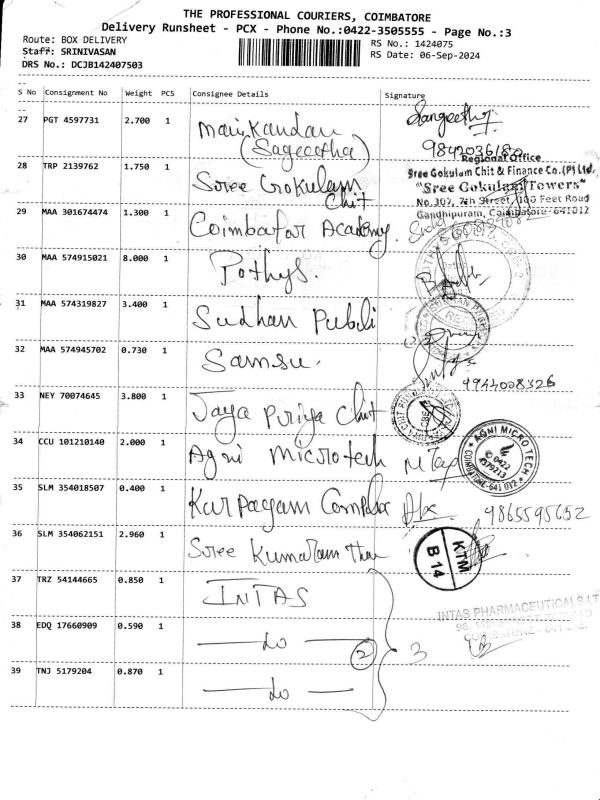 THE PROFESSIONAL COURIERS, COIMBATORE
Delivery Runsheet - PCX - Phone No.:0422-3505555 - Page No.:3
Route: BOX DELIVERY
Staff: SRINIVASAN
DRS No.: DCJB142407503
RS No.: 1424075
RS Date: 06-Sep-2024
S No Consignment No Weight PCS Consignee Details Signature
27 PGT 4597731 2.700 1 Manikandan Sangeetha
(Sageetha) 9842036180
28 TRP 2139762 1.750 1 Sree Gokulam
Chit
Regional Office
Sree Gokulam Chit & Finance Co.(P) Ltd.
"Sree Gokulam Towers"
No. 307, 7th Street, 100 Feet Road
Gandhipuram, Coimbatore-641012
29 MAA 301674474 1.300 1 Coimbator Academy
30 MAA 574915021 8.000 1 Pothys.
31 MAA 574319827 3.400 1 Sudhan Publi
32 MAA 574945702 0.730 1 Samsu.
9944008326
33 NEY 70074645 3.800 1 Jaya Piriya Chit
34 CCU 101210140 2.000 1 Agni Microtech
AGNI MICRO TECH
0422
4579213
COIMBATORE-641 012
35 SLM 354018507 0.400 1 Karpagam Complex 9865595652
36 SLM 354062151 2.960 1 Sree Kumaran Tha
KTM
B 14
37 TRZ 54144665 0.850 1 INTAS
INTAS PHARMACEUTICALS LT
38 EDQ 17660909 0.590 1 do 2 3
39 TNJ 5179204 0.870 1 do